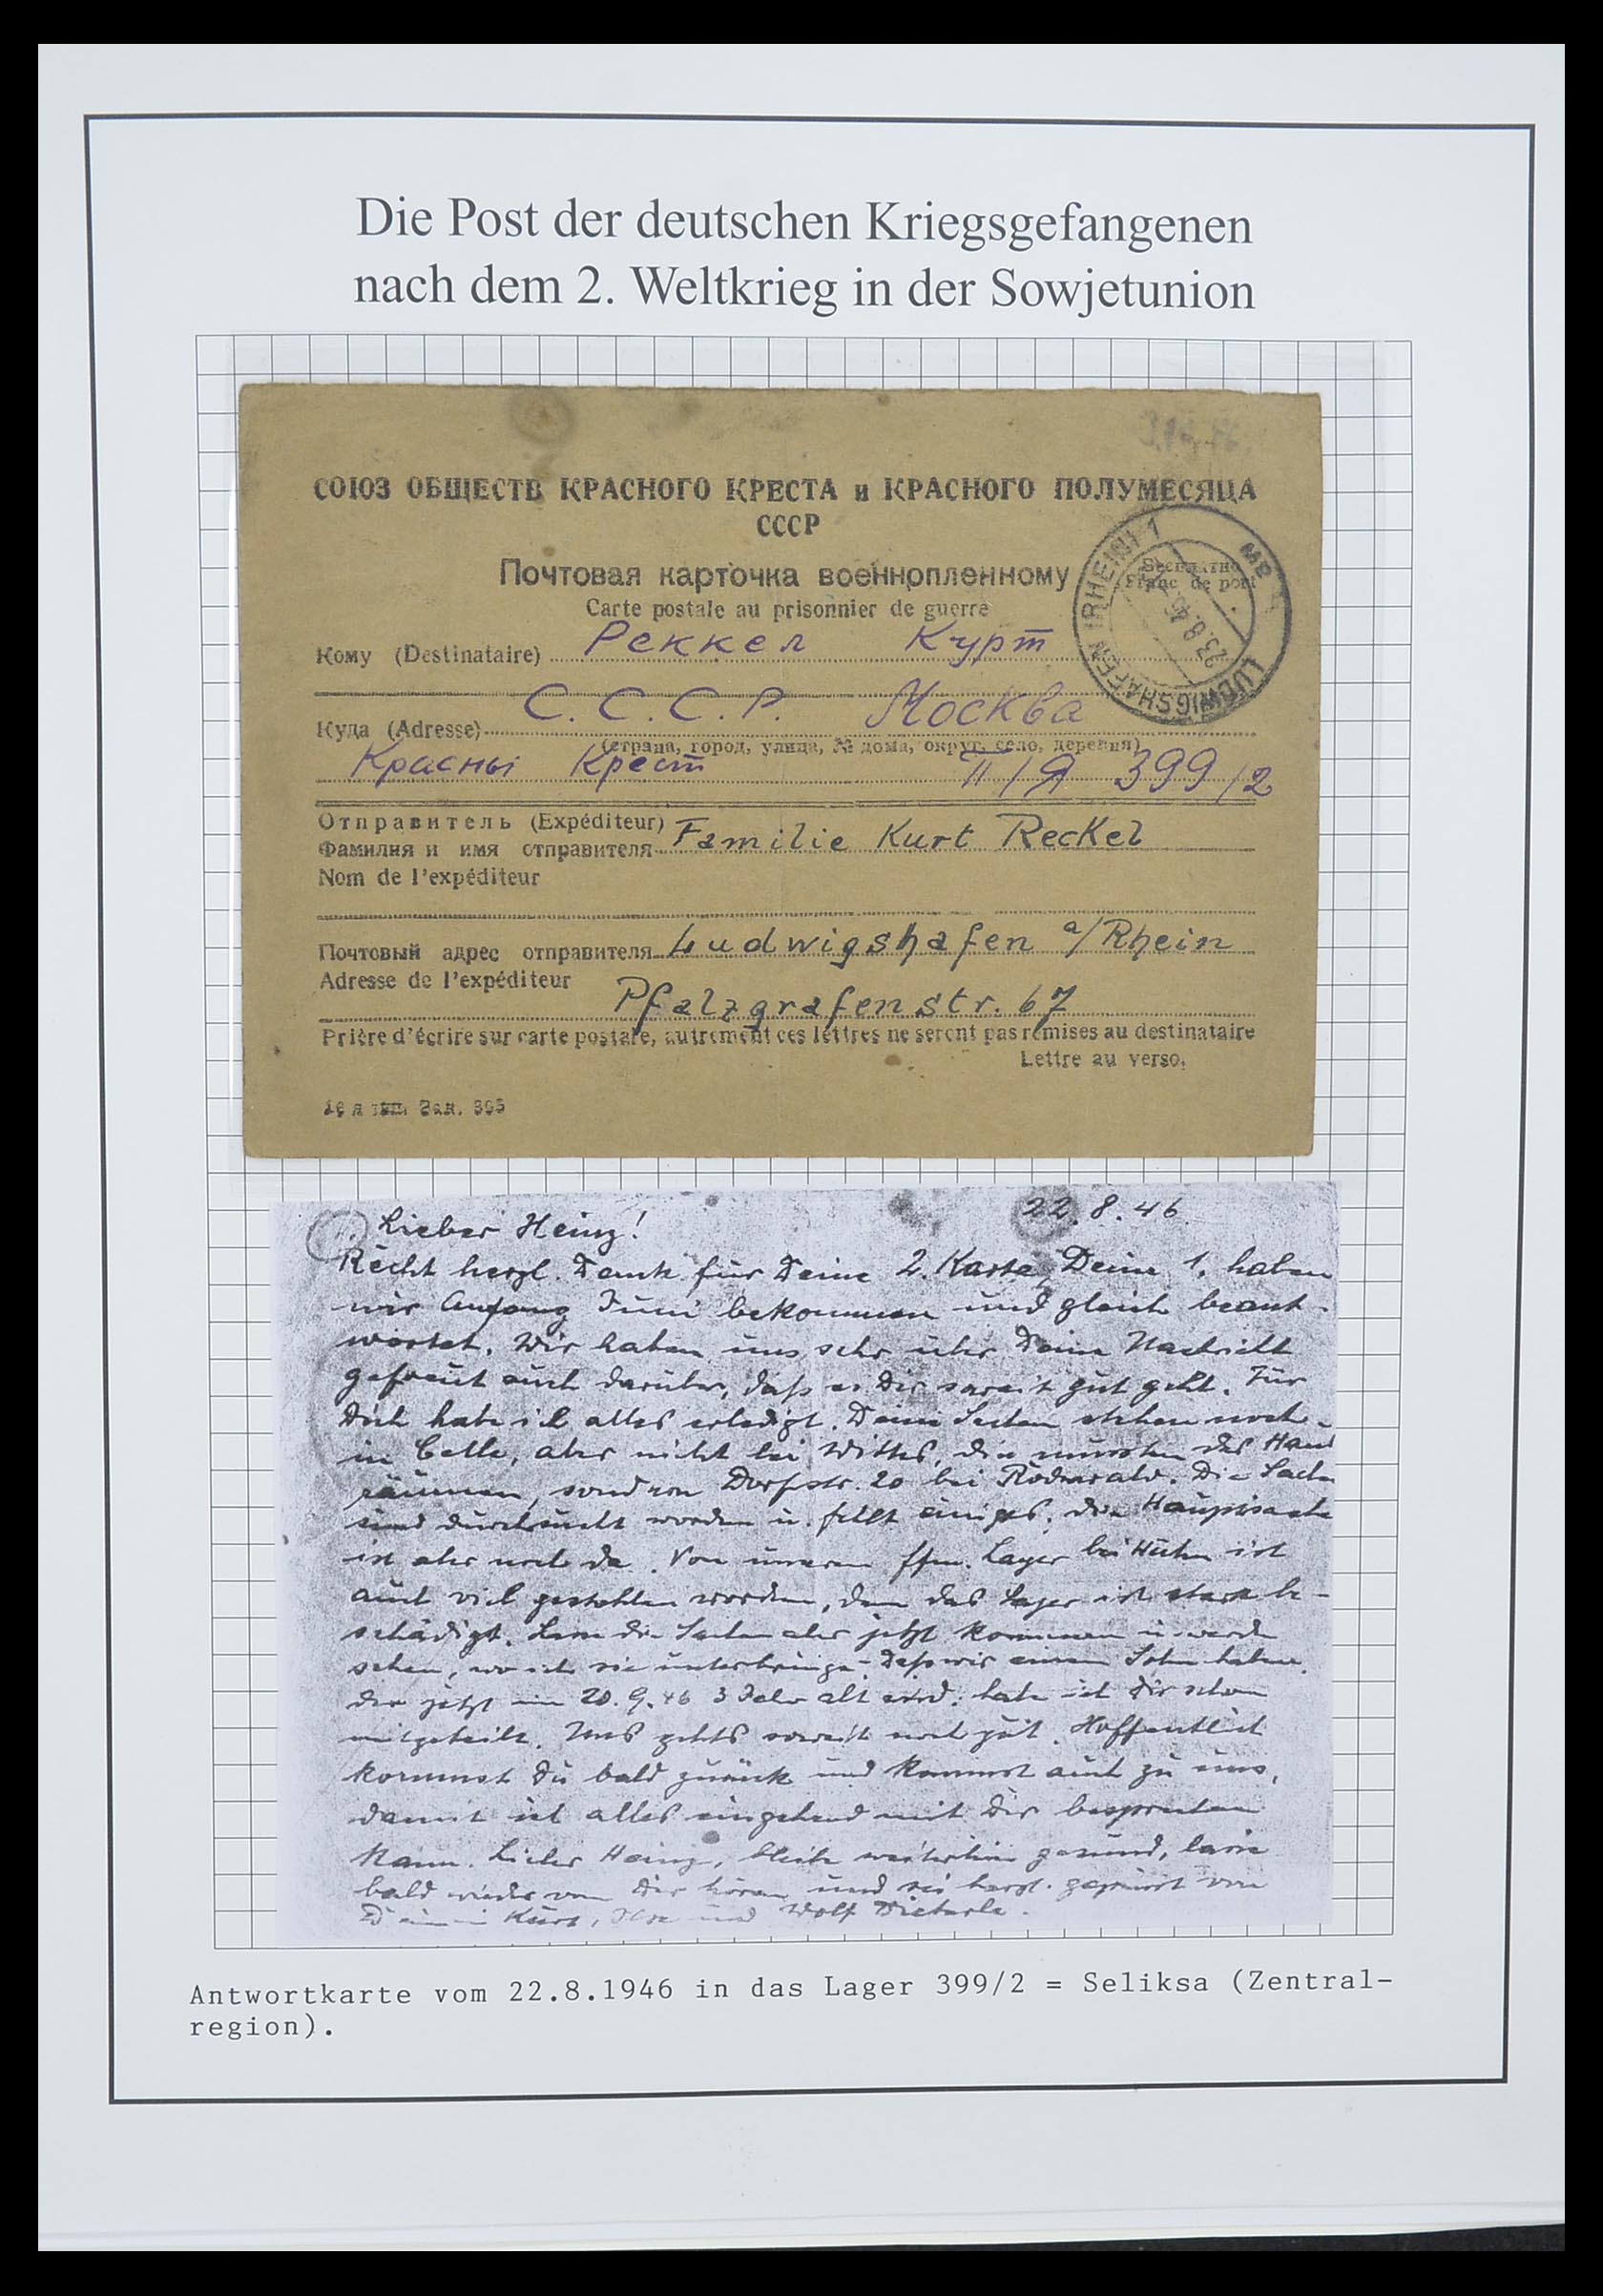 Die Post der deutschen Kriegsgefangenen
nach dem 2. Weltkrieg in der Sowjetunion
СОЮЗ ОБЩЕСТВ КРАСНОГО КРЕСТА и КРАСНОГО ПОЛУМЕСЯЦА
СССР
Почтовая карточка военнопленному
Бесплатно
Franc de port
Carte postale au prisonnier de guerre
LUDWIGSHAFEN (RHEIN) 1
23.8.46
Кому (Destinataire) Реккел Курт
Куда (Adresse) С.С.С.Р. Москва
(страна, город, улица, № дома, округ, село, деревня)
Красны Крест П/Я 399/2
Отправитель (Expéditeur)
Фамилия и имя отправителя Familie Kurt Reckel
Nom de l'expéditeur
Почтовый адрес отправителя Ludwigshafen a/Rhein
Adresse de l'expéditeur Pfalzgrafenstr. 67
Prière d'écrire sur carte postale, autrement ces lettres ne seront pas remises au destinataire
Lettre au verso.
22.8.46
Lieber Heinz!
Recht herzl. Dank für Deine 2. Karte, Deine 1. haben
wir Anfang Juni bekommen und gleich beant-
wortet. Wir haben uns sehr über Deine Nachricht
gefreut auch darüber, daß es Dir soweit gut geht. Für
Dich habe ich alles erledigt. Deine Sachen stehen noch
in Celle, aber nicht bei Wittes, die mussten das Haus
räumen, sondern Dorfstr. 20 bei. Die Sachen
sind durchsucht worden u. fehlt einiges, die Hauptsache
ist aber noch da. Von unserem Lager bei ist
auch viel gestohlen worden, denn das Lager ist stark be-
schädigt. die Sachen aber jetzt kommen u. werde
sehen, wo ich sie unterbringe. Daß wir einen Sohn haben,
der jetzt im 20.9.46 3 Jahr alt wird, habe ich Dir schon
mitgeteilt. Uns gehts soweit noch gut. Hoffentlich
kommst Du bald zurück und kommst auch zu uns,
damit ich alles eingehend mit Dir besprechen
kann. Lieber Heinz, bleibe weiterhin gesund, lasse
bald wieder von Dir hören und sei herzl. gegrüsst von
Deinem Kurt, Ilse und Wolf Dieterle.
Antwortkarte vom 22.8.1946 in das Lager 399/2 = Seliksa (Zentral-
region).